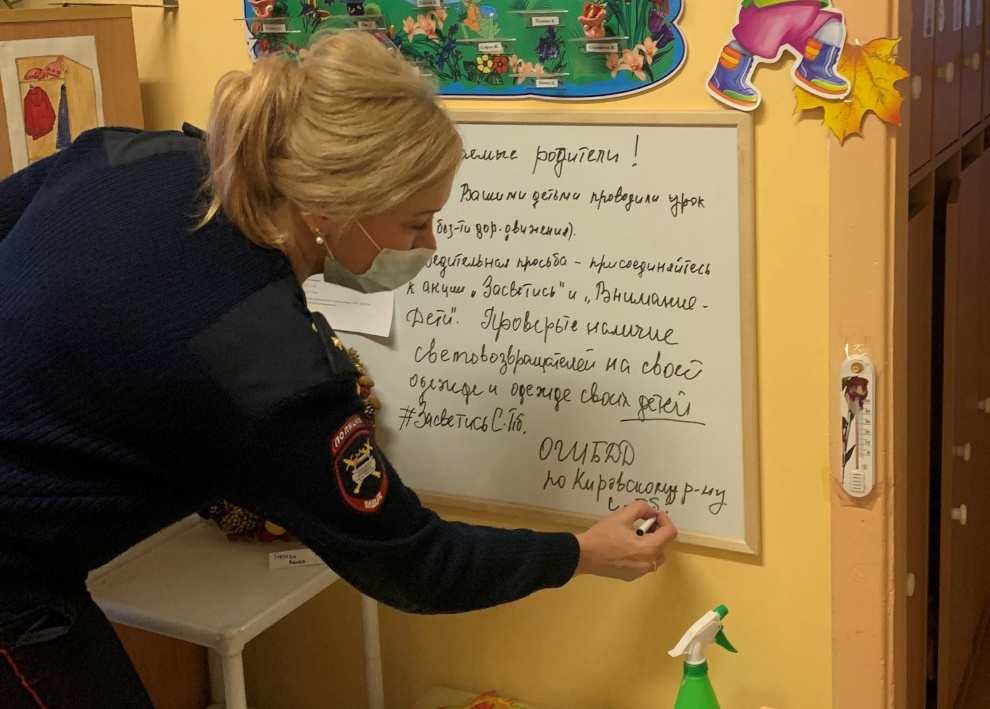 аемые родители!
Вашими детьми проводили урок
без-ти дор. движения).
бедительная просьба - присоединяйтесь
к акции „Засветись" и „Внимание-
Дети". Проверьте наличие
световозвращателей на своей
одежде и одежде своих детей
#ЗасветисьС.Пб.
ОГИБДД
по Кировскому р-ну
ПОЛИЦИЯ
МВД